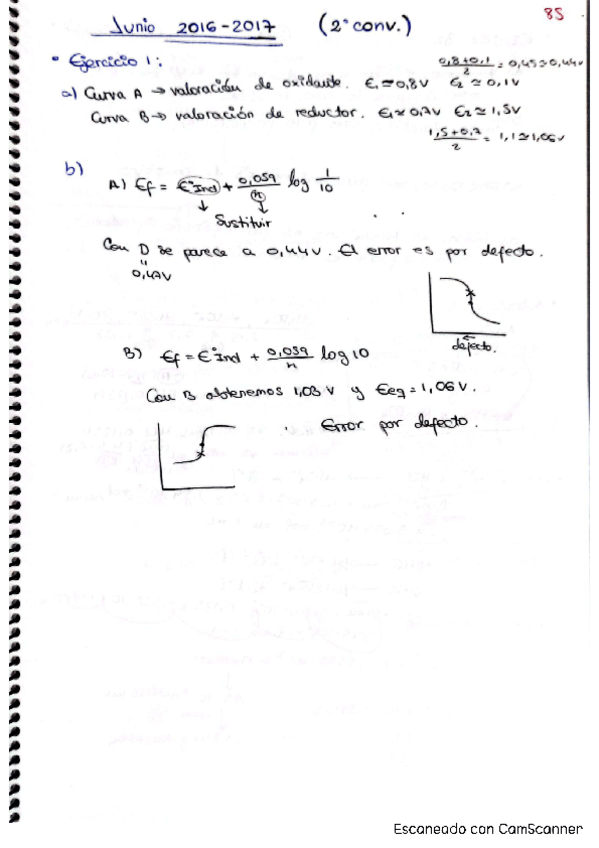 85
Junio 2016-2017 (2ª conv.)
• Ejercicio 1:
a) Curva A → valoración de oxidante. E₁≈0,8V E₂≈0,1V
(0,8+0,1)/2 = 0,45≈0,44V
Curva B → valoración de reductor. E₁≈0,7V E₂≈1,5V
(1,5+0,7)/2 = 1,1≈1,06V
b)
A) Ef = E°Ind + 0,059/n log 1/10
↓ ↓
Sustituir
Con D se parece a 0,44V. El error es por defecto.
"
0,47V
defecto.
B) Ef = E°Ind + 0,059/n log 10
Con B obtenemos 1,03 V y Eeq = 1,06 V.
Error por defecto.
Escaneado con CamScanner